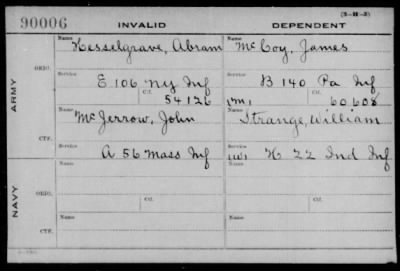 (3-H-5)
90006 INVALID DEPENDENT
Name Name
Hesselgrave, Abram McCoy, James
ORIG.
Service Service
E 106 NY Inf B 140 Pa Inf
Ctf. Ctf.
54126 (M) 60.608
ARMY
Name Name
McJerrow, John Strange, William
CTF.
Service Service
A 56 Mass Inf (W) K 22 Ind Inf
NAVY
Name Name
ORIG.
Service Ctf. Service Ctf.
Name Name
CTF.